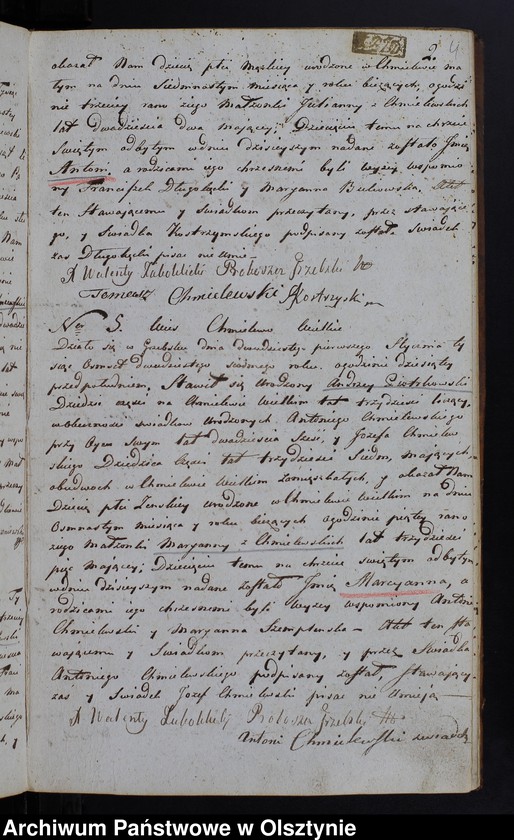 2 4
okazał Nam dziecię płci Męskiey urodzone w Chmielewie ma
łym na dniu Siedmnastym miesiąca y roku bieżących, ogodzi
nie trzeciey rano z iego Małżonki Julianny z Chmielewskich
lat dwadzieścia dwa maiącey; Dziecięciu temu na chrzcie
Swiętym odbytym w dniu dzisieyszym nadane zostało Jmię
Antoni, a rodzicami iego chrzesnemi byli wyżey wspomio
ny Franciszek Długołęcki y Maryanna Akt
ten Stawaiącemu y Swiadkom przeczytany, przez stawaiące
go, y Swiadka Kostrzyńskiego podpisany został Swiadek
zas Długołęcki pisac nie umie.
X Walenty Proboszcz Grzebski
Chmielewski Kostrzyski
Nro 5. Wies Chmielewo Wielkie
Działo się w Grzebsku dnia dwudziestego pierwszego Stycznia ty
siąc Osmset dwudziestego siodmego roku ogodzinie dziesiątey
przedpołudniem, Stawił się Urodzony Andrzey Piotrkowski
Dziedzic części na Chmielewie Wielkim lat trzydzieści liczący,
w obecności swiadków Urodzonych Antoniego Chmielewskiego
przy Oycu swym lat dwadziescia Szesć, y Jozefa Chmielew
skiego Dziedzica Części lat trzydzieści Siedm, maiących,
obudwoch w Chmielewie Wielkim zamieszkałych, y okazał Nam
Dziecię płci Zenskiey urodzone w Chmielewie Wielkim na dniu
Osmnastym miesiąca y roku bieżących ogodzinie piątey rano
z iego małżonki Maryanny z Chmielewskich lat trzydzieści
pięc maiącey; Dziecięciu temu na chrzcie swiętym odbytym
w dniu dzisieyszym nadane zostało Jmię Marcyanna, a
rodzicami iego chrzesnemi byli wyżey wspomiony Antoni
Chmielewski y Maryanna Szempłinska – Akt ten Sta
waiącemu y Swiadkom przeczytany, y przez Swiadka
Antoniego Chmielewskiego podpisany został, Stawaiący
zas y Swiadek Jozef Chmielewski pisac nie umieią —
X Walenty Proboszcz Grzebski
Antoni Chmielewski swiadek
Archiwum Państwowe w Olsztynie